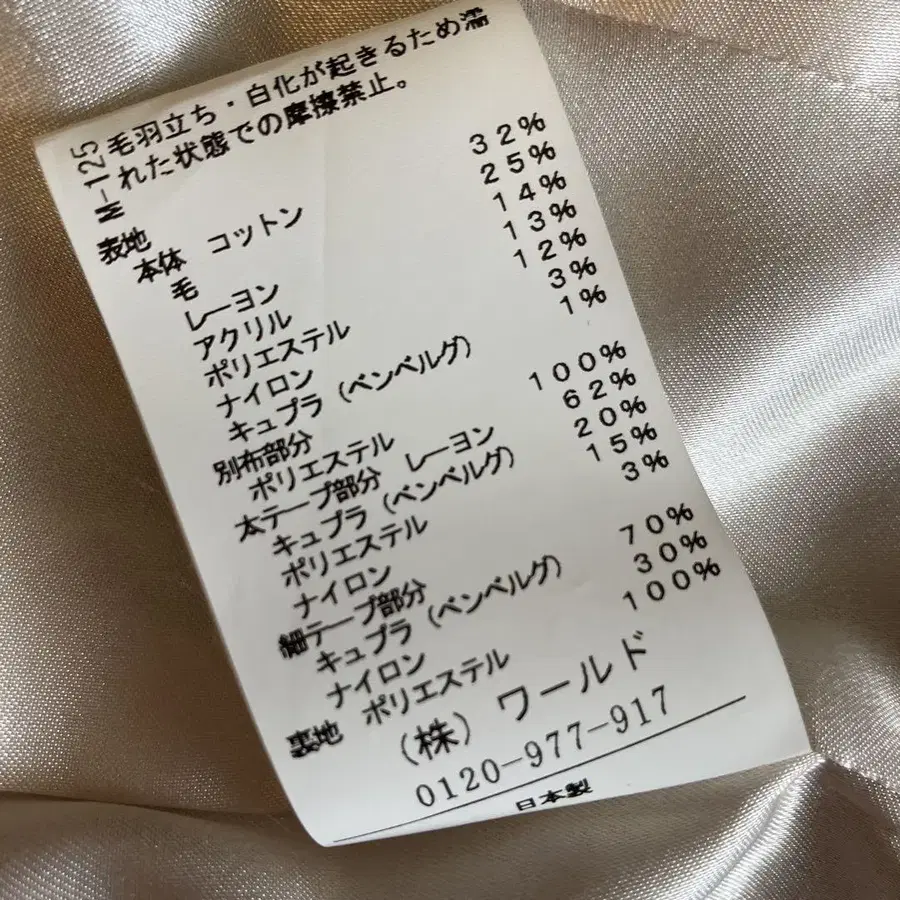 M-125 毛羽立ち・白化が起きるため濡
れた状態での摩擦禁止。
表地
本体 コットン 32%
毛 25%
レーヨン 14%
アクリル 13%
ポリエステル 12%
ナイロン 3%
キュプラ(ベンベルグ) 1%
別布部分
ポリエステル 100%
太テープ部分 レーヨン 62%
キュプラ(ベンベルグ) 20%
ポリエステル 15%
ナイロン 3%
細テープ部分
キュプラ(ベンベルグ) 70%
ナイロン 30%
裏地 ポリエステル 100%
(株) ワールド
0120-977-917
日本製